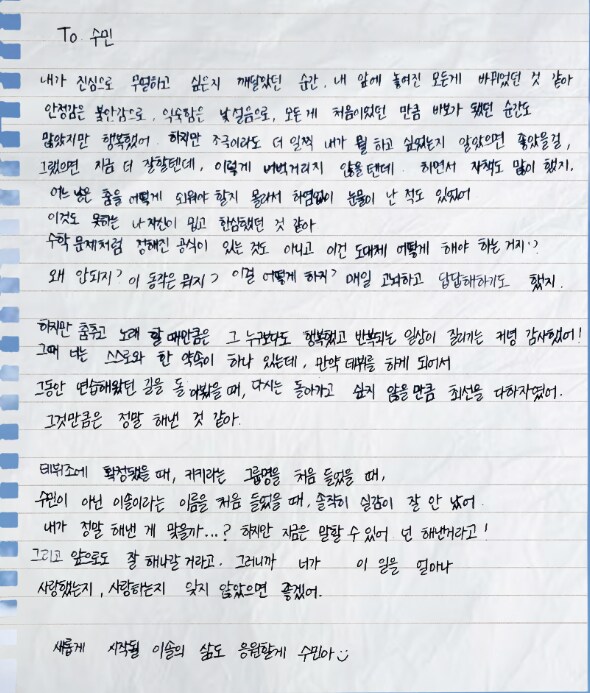 To 수민
내가 진심으로 무얼하고 싶은지 깨달았던 순간, 내 앞에 놓여진 모든게 바뀌었던 것 같아
안정감은 불안감으로, 익숙함은 낯설음으로, 모든게 처음이었던 만큼 바보가 됐던 순간도
많았지만 행복했어. 하지만 조금이라도 더 일찍 내가 뭘 하고 싶었는지 알았으면 좋았을걸,
그랬으면 지금 더 잘할텐데, 이렇게 버벅거리지 않을텐데. 하면서 자책도 많이 했지.
어느 날은 춤을 어떻게 외워야 할지 몰라서 하염없이 눈물이 난 적도 있었어
이것도 못하는 나 자신이 밉고 한심했던 것 같아
수학 문제처럼 정해진 공식이 있는 것도 아니고 이건 도대체 어떻게 해야 하는 거지?
왜 안되지? 이 동작은 뭐지? 이걸 어떻게 하지? 매일 고뇌하고 답답해하기도 했지.
하지만 춤추고 노래 할 때만큼은 그 누구보다도 행복했고 반복되는 일상이 질리기는 커녕 감사했어!
그때 너는 스스로와 한 약속이 하나 있는데, 만약 데뷔를 하게 되어서
그동안 연습해왔던 길을 돌아봤을 때, 다시는 돌아가고 싶지 않을만큼 최선을 다하자였어.
그것만큼은 정말 해낸 것 같아.
데뷔조에 확정됐을 때, 키키라는 그룹명을 처음 들었을 때,
수민이 아닌 이솔이라는 이름을 처음 들었을 때, 솔직히 실감이 잘 안 났어.
내가 정말 해낸 게 맞을까...? 하지만 지금은 말할 수 있어 넌 해낸거라고!
그리고 앞으로도 잘 해나갈 거라고. 그러니까 너가 이 일을 얼마나
사랑했는지, 사랑하는지 잊지 않았으면 좋겠어.
새롭게 시작될 이솔의 삶도 응원할게 수민아